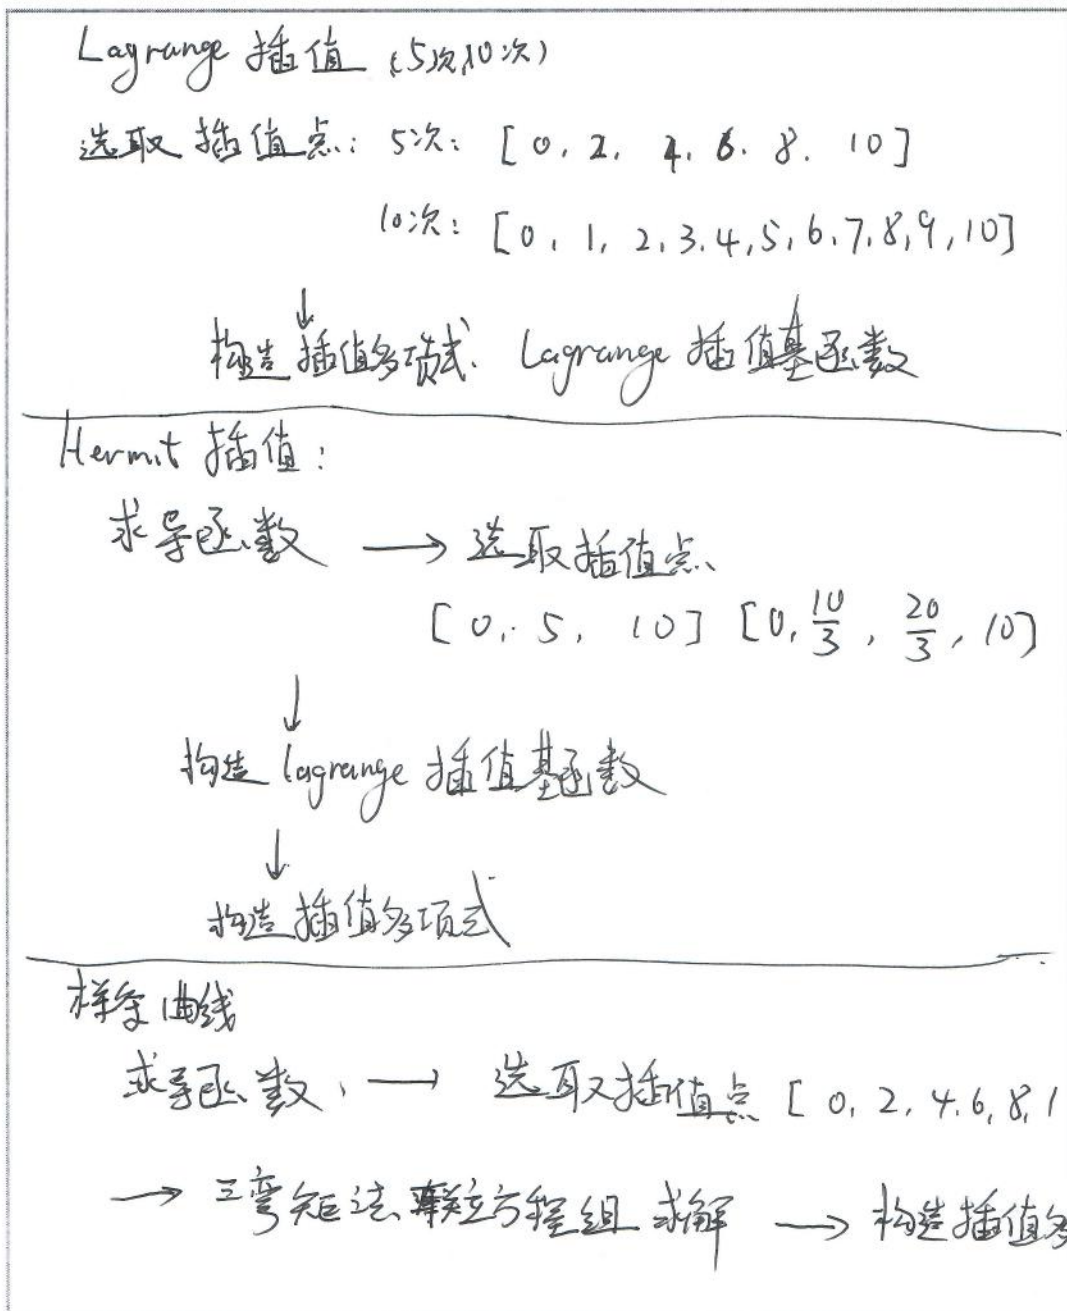 Lagrange 插值 (5次,10次)
选取 插值点: 5次: [0, 2, 4, 6, 8, 10]
10次: [0, 1, 2, 3, 4, 5, 6, 7, 8, 9, 10]
↓
构造 插值多项式. Lagrange 插值基函数
Hermit 插值:
求导函数 → 选取插值点
[0, 5, 10] [0, 10/3, 20/3, 10]
↓
构造 lagrange 插值基函数
↓
构造插值多项式
样条曲线
求导函数, → 选取插值点 [0, 2, 4, 6, 8, 1
→ 三弯矩法 联立方程组 求解 → 构造插值多